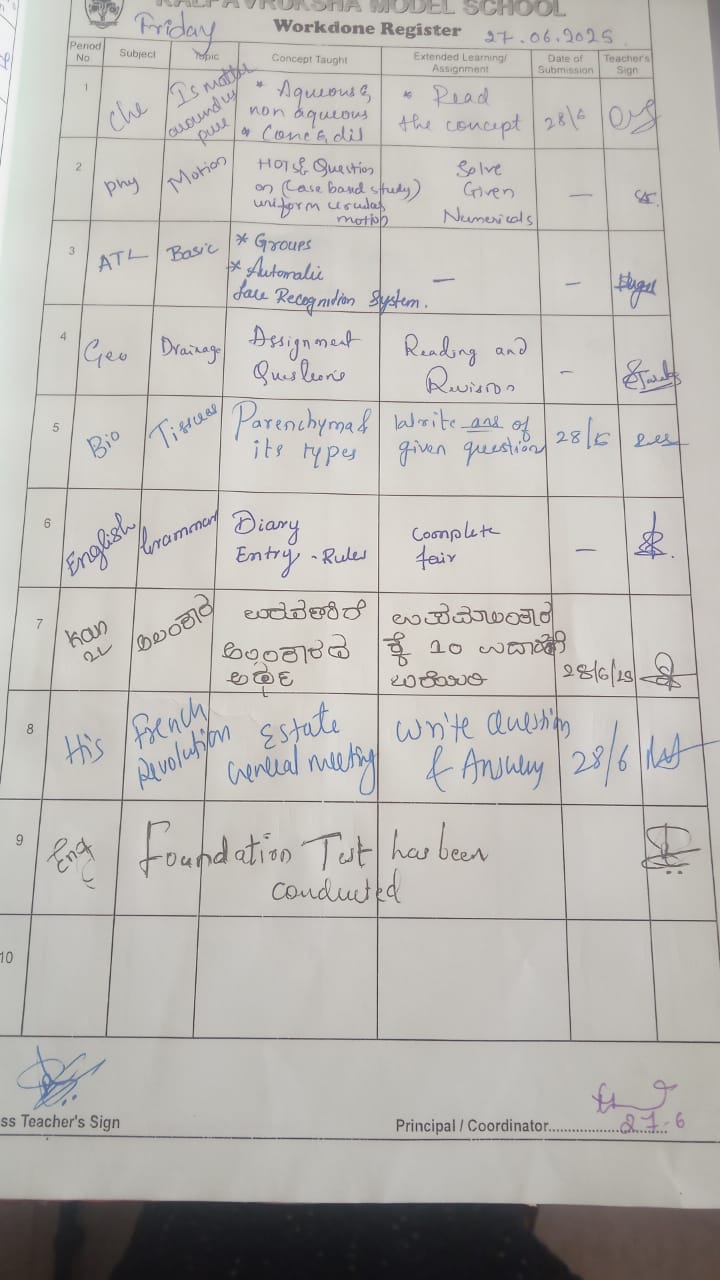 KALPAVRUKSHA MODEL SCHOOL
Workdone Register
Friday
27.06.2025
Period No
Subject
Topic
Concept Taught
Extended Learning/ Assignment
Date of Submission
Teacher's Sign
1
Che
Is matter
around us
pure
* Aqueous &
non aqueous
* Conc & dil
* Read
the concept
28/6
2
Phy
Motion
HOTS Question
on (Case band study)
uniform
motion
Solve
Given
Numericals
—
3
ATL
Basic
* Groups
* Automatic
face Recognition System.
—
—
4
Geo
Drainage
Assignment
Questions
Reading and
Revision
–
5
Bio
Tissues
Parenchyma &
its types
Write ans of
given question
28/6
6
English
Grammar
Diary
Entry - Rules
Complete
fair
—
7
Kan
2L
ಅಲಂಕಾರ
ಅಲಂಕಾರದ
ಅರ್ಥ
10
28/6/25
8
His
French
Revolution
Estate
General meeting
Write Question
& Answer
28/6
9
Eng
Foundation Test has been
conducted
10
ss Teacher's Sign
Principal / Coordinator
27-6